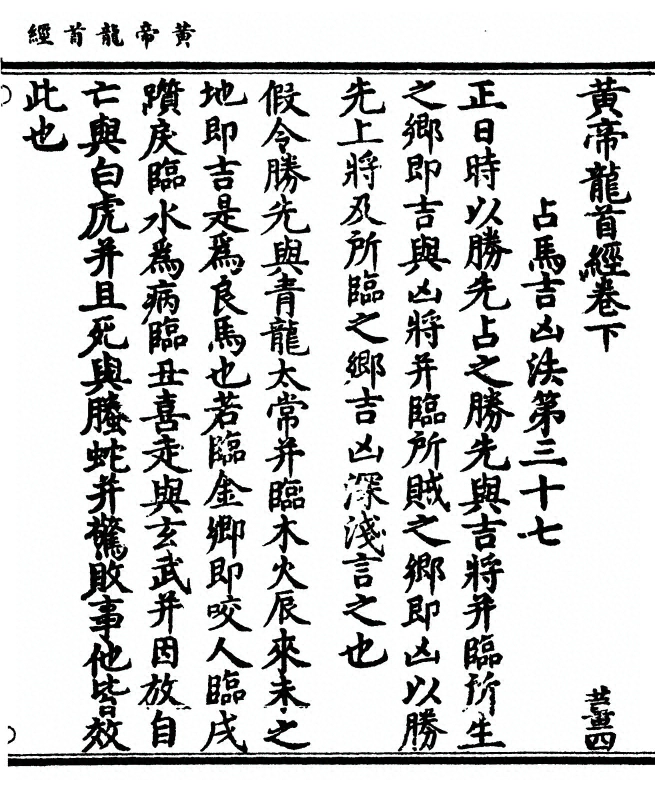 黃帝龍首經
黃帝龍首經卷下 薑四
占馬吉凶法第三十七
正日時以勝先占之勝先與吉將并臨所生
之鄉即吉與凶將并臨所賊之鄉即凶以勝
先上將及所臨之鄉吉凶深淺言之也
假令勝先與青龍太常并臨木火辰來未之
地即吉是爲良馬也若臨金鄉即咬人臨戌
躓戾臨水爲病臨丑喜走與玄武并因放自
亡與白虎并且死與螣蛇并驚敗事他皆效
此也